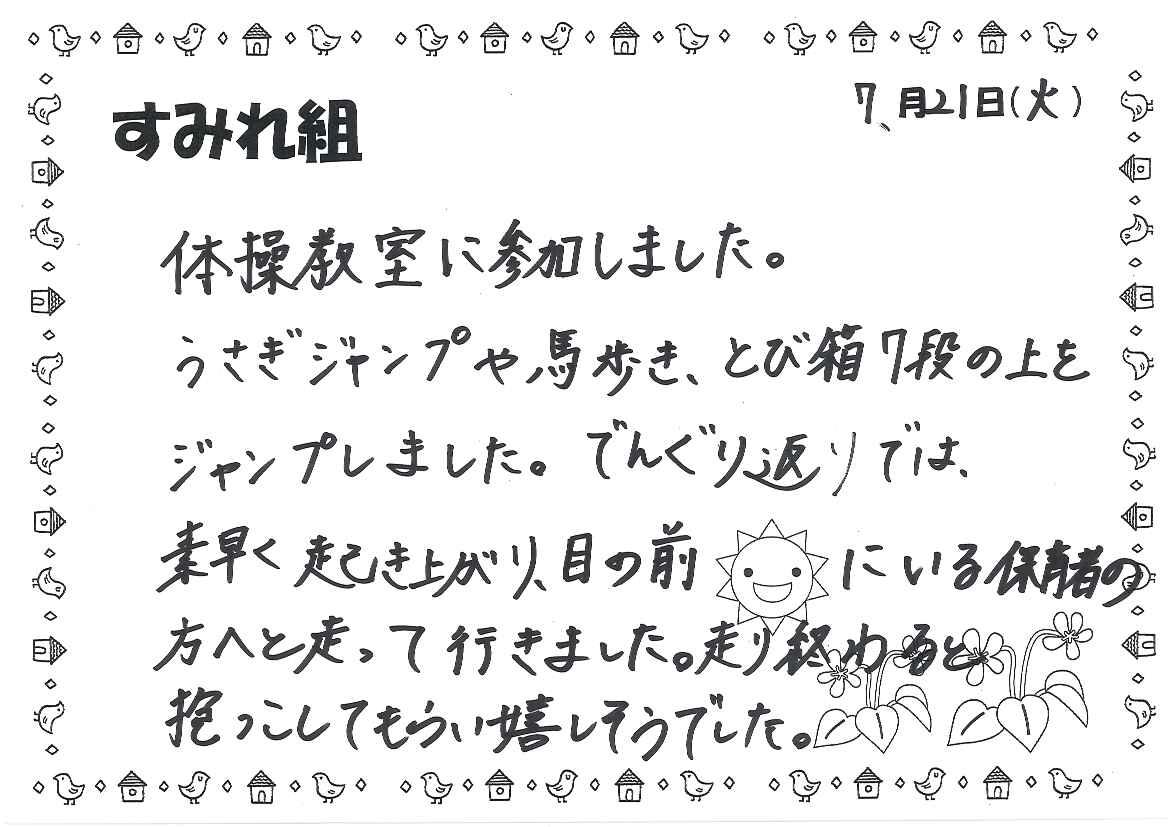 すみれ組
7月21日(火)
体操教室に参加しました。
うさぎジャンプや馬歩き、とび箱7段の上を
ジャンプしました。でんぐり返りでは、
素早く起き上がり、目の前にいる保育者の
方へと走って行きました。走り終わると
抱っこしてもらい嬉しそうでした。